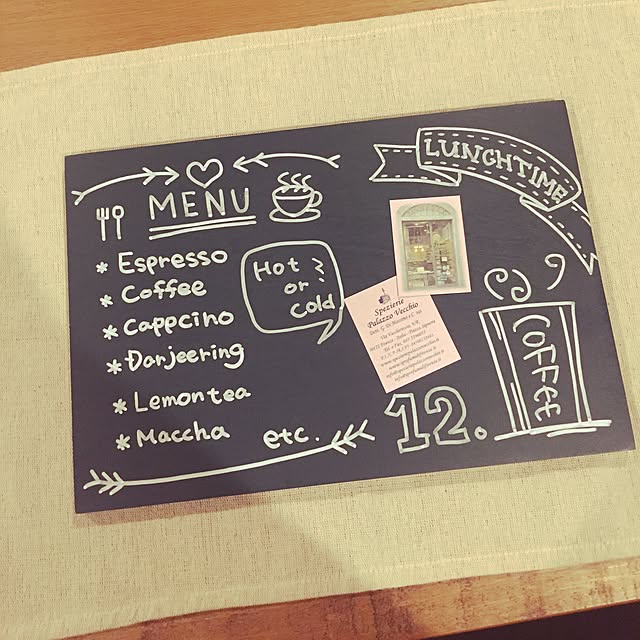 LUNCHTIME
MENU
* Espresso
* Coffee
* Cappcino
* Darjeering
* Lemontea
* Maccha
etc.
Hot
or
Cold
Spezierie
Palazzo Vecchio
12.
COFFEE